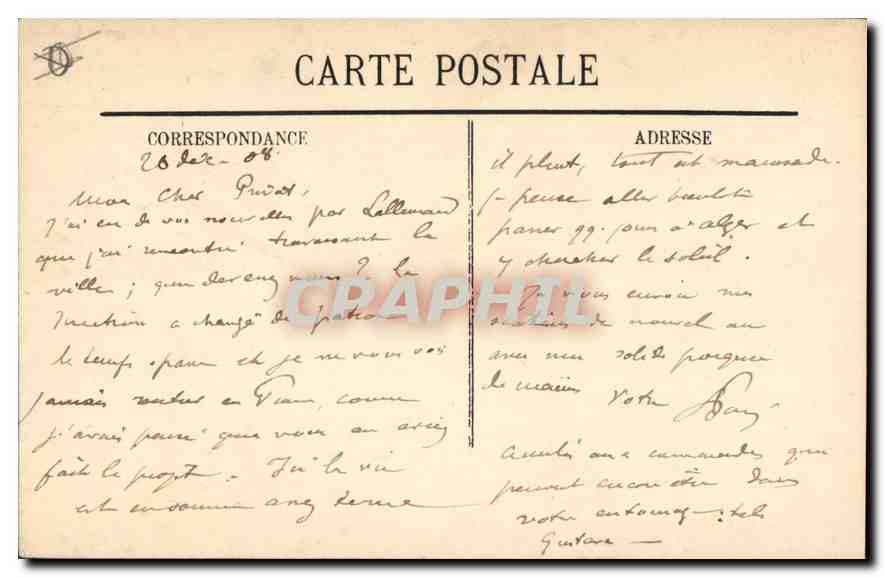 CARTE POSTALE
CORRESPONDANCE
26 déc - 08.
Mon Cher Privat,
J'ai eu de vos nouvelles par Lallemand
que j'ai rencontré traversant la
ville; que devenez vous? La
a changé de patron
le temps passe et je ne vous vois
jamais rentrer en France, comme
j'avais pensé que vous en aviez
fait le projet. Ici la vie
est en somme assez terne
ADRESSE
il pleut, tout est maussade.
Je pense aller bientôt
passer qq. jours à Alger et
y chercher le soleil.
Je vous envoie mes
de nouvel an
avec une solide poignée
de mains
Votre
amitiés aux camarades qui
peuvent encore être dans
votre entourage tels
Gustave
CRAPHIL